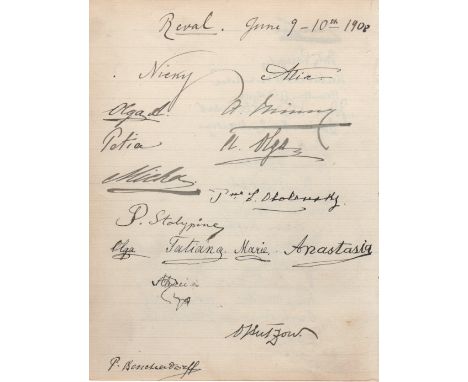 Reval. June 9-10th 1908
Nicky Alix
Olga A. Minny
Petia A. Olga
Micha
Pce L. Obolensky
P. Stolypine
Olga Tatiana Marie Anastasia
Alexis
P. Benckendorff